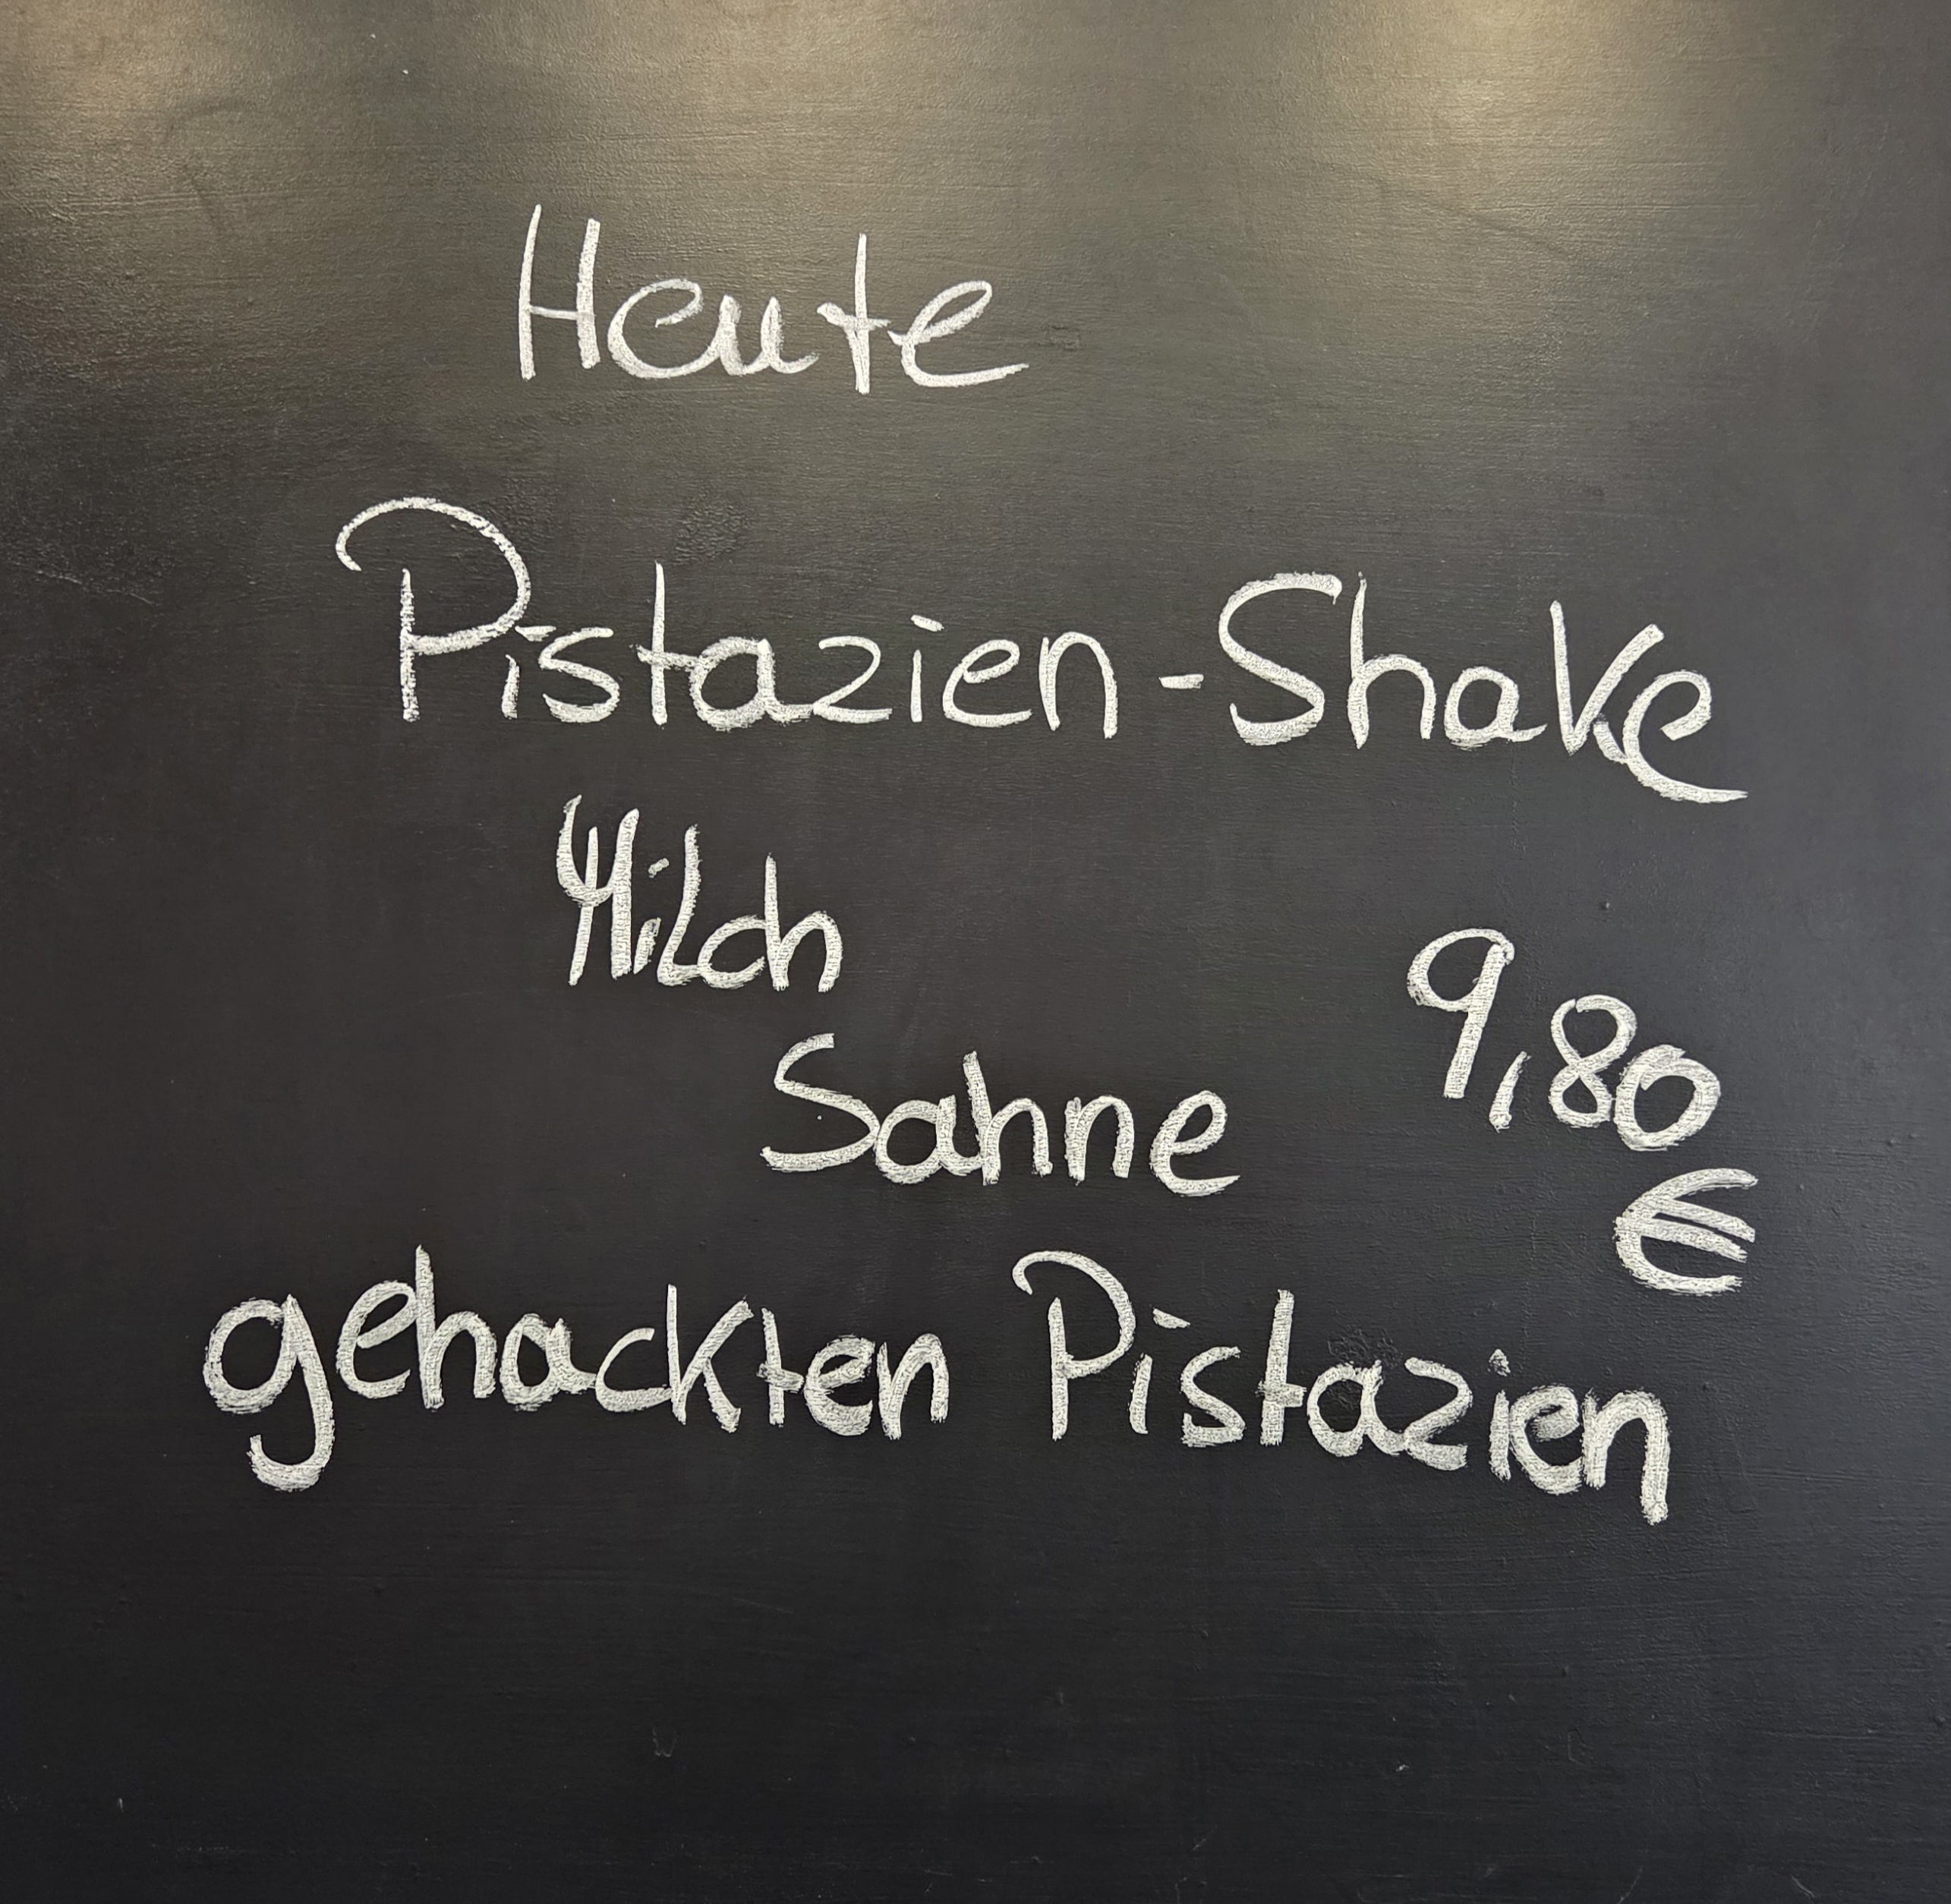 Heute
Pistazien-Shake
Milch
Sahne
9,80
€
gehackten Pistazien